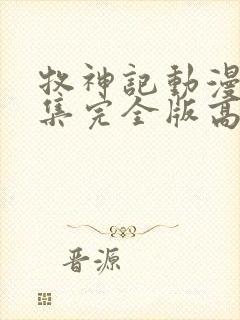 牧神記動漫
集完全版高
晋源